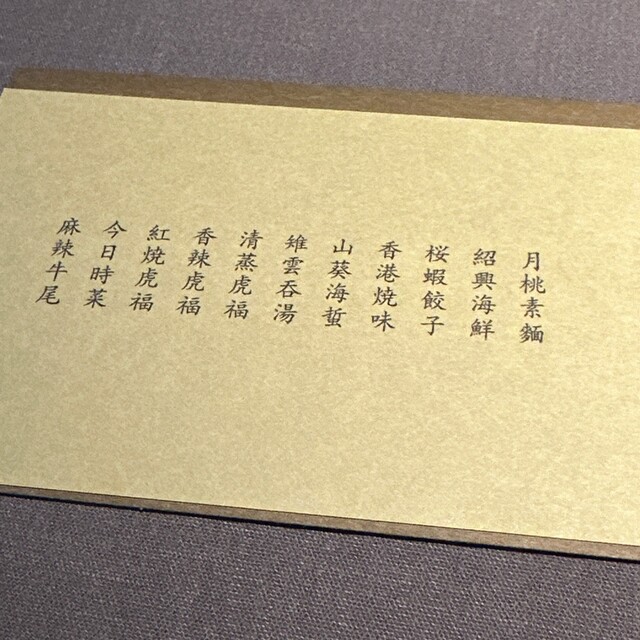 月桃素麺
紹興海鮮
桜蝦餃子
香港焼味
山葵海蜇
雉雲呑湯
清蒸虎福
香辣虎福
紅焼虎福
今日時菜
麻辣牛尾